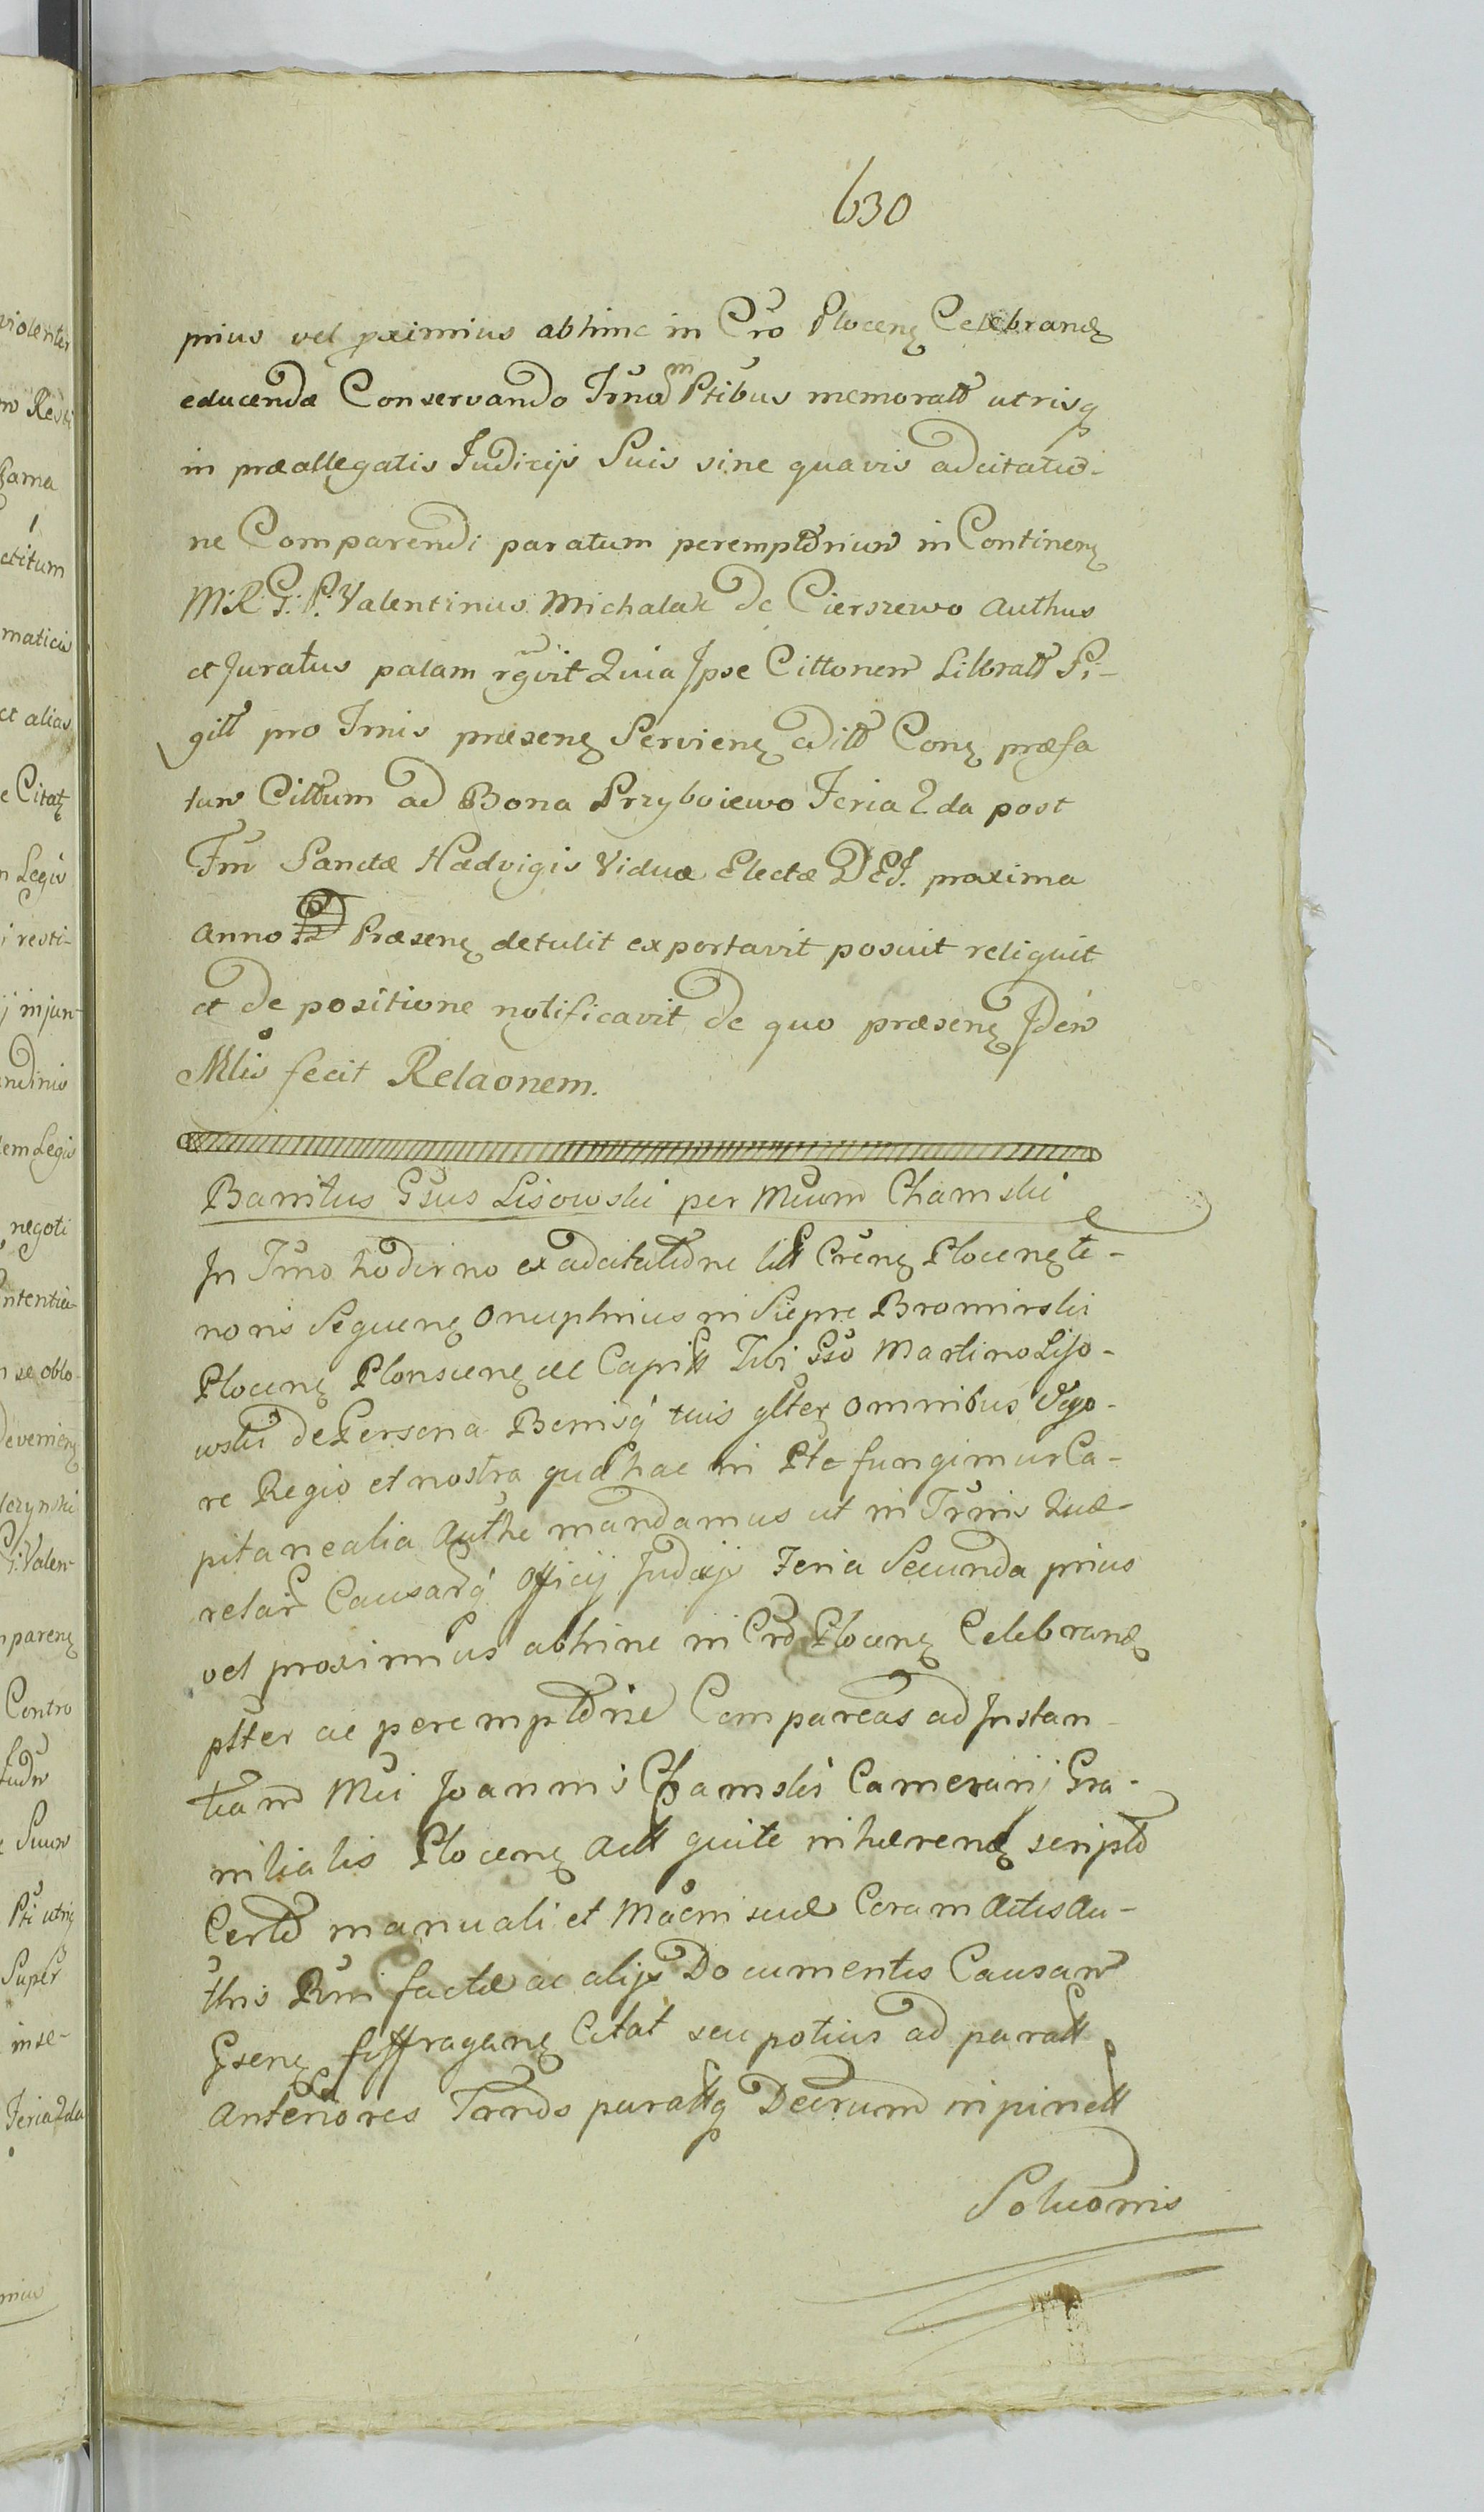 630
prius vel proximius abhinc in Cro Plocen Celebrand
educendæ Conservando Trnum Ptibus memoratt utrisq
in præallegatis Judicijs Suis sine quavis adcitatio-
ne Comparendi paratum peremptorium in Continen
M: R: G: P: Valentinus Michalak de Cierszewo Authus
et Juratus palam rgvit Quia Ipse Cittonem Libratt Si-
gitt pro Trnis præsen Servien editt Con præfa
tum Cittum ad Bona Przyboiewo Feria 2da post
Ftm Sanctæ Hedvigis Viduæ Electæ DEI. proxima
Anno Præsen detulit exportavit posuit reliquit
et de positione notificavit de quo præsen Idem
Mlis fecit Relaonem.
Bannitus Gsus Lisowski per Mcum Chamski
In Trno hodierno ex adcitatione litt Cren Plocen te-
noris Sequen Onuphrius in Siepre Bromirski
Plocen Plonscen etc Capitt Tibi Gso Martino Liso-
wski de Persona Bonisq tuis glter omnibus Vigo-
re Regio et nostra qua hac in Pte fungimur Ca-
pitanealia Authe mandamus ut in Trnis Quæ-
relar Causarq Officij Judicijs Feria Secunda prius
vel proximius abhinc in Cro Plocen Celebrand
plter ac peremptorie Compareas ad Instan-
tiam Mci Joannis Chamski Camerarij Gra-
nitialis Plocen Actt quite inhæren scripto
Certo manuali et Maoni suæ Coram Actis Au-
this Rni factæ ac alijs Documentis Causam
Gsen suffragan Citat seu potius ad paratt
Anteriores Trnos parattq Decrum in pinctt
Soluonis